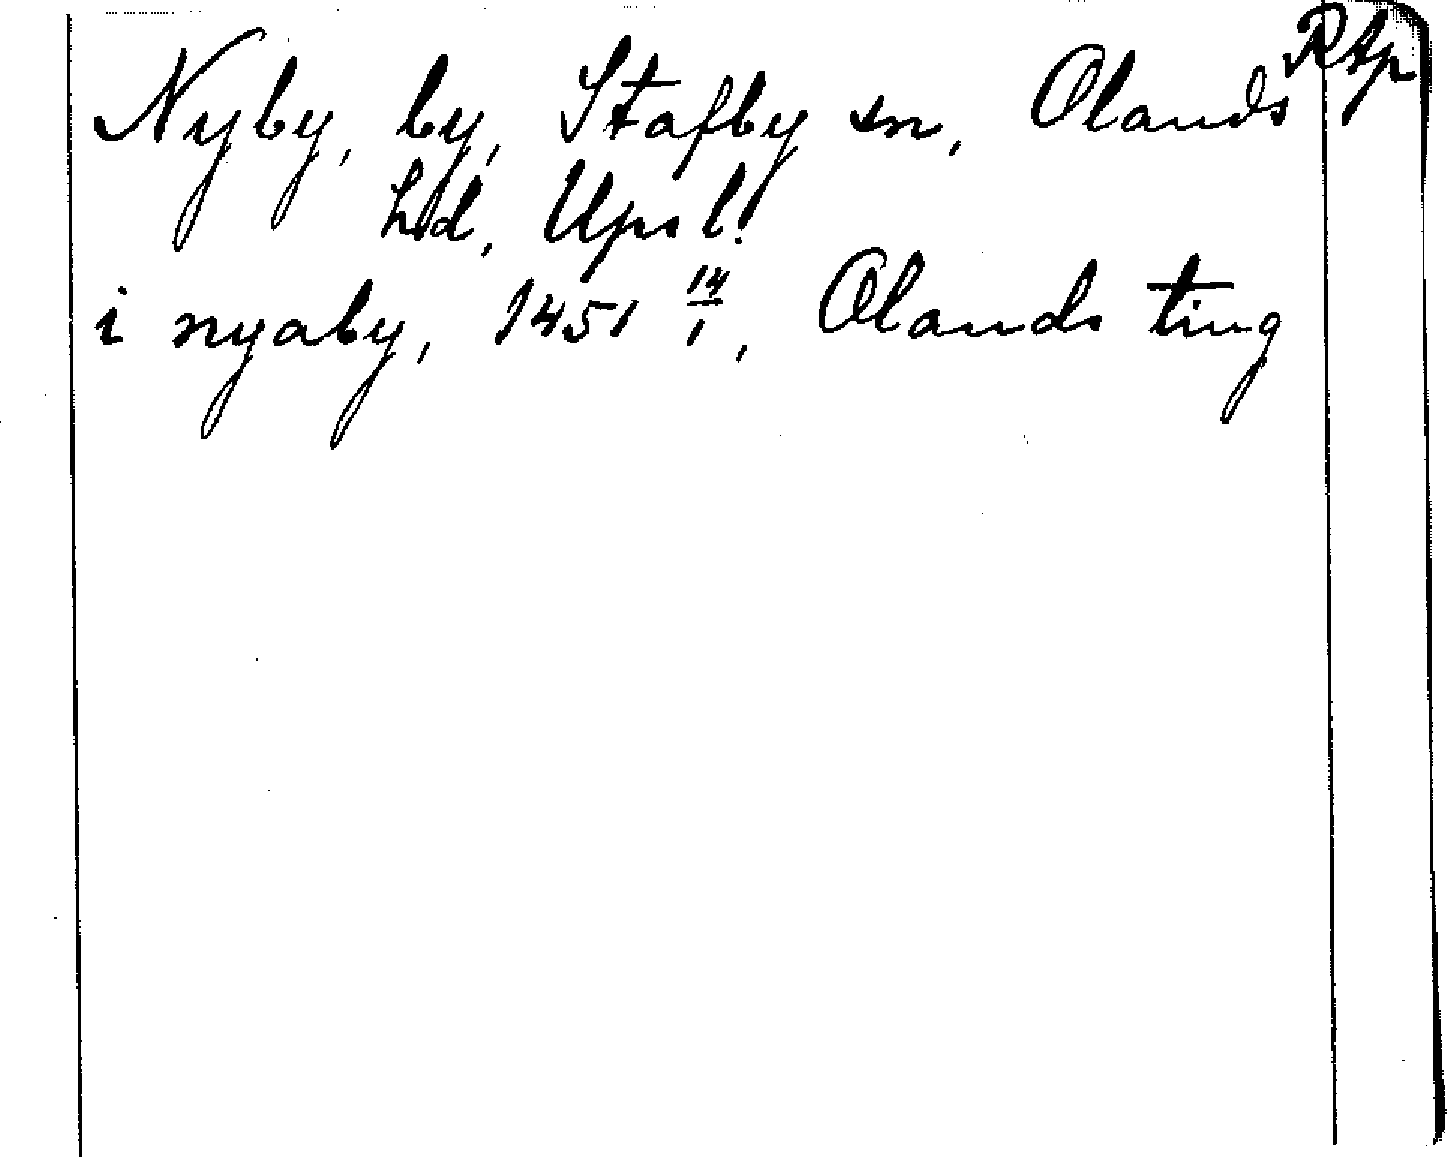 Nyby, by, Stafby sn, Olands RAp
hd, Upsl.
i nyaby, 1451 14/1, Olands ting